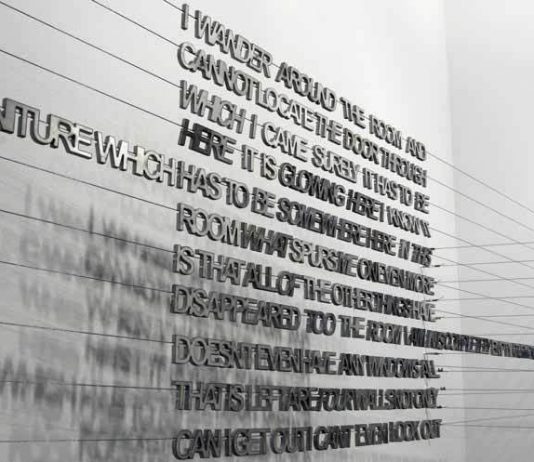 I WANDER AROUND THE ROOM AND
CANNOT LOCATE THE DOOR THROUGH
WHICH I CAME SURELY IT HAS TO BE
HERE IT IS GLOWING HERE I KNOW IT
NITURE WHICH HAS TO BE SOMEWHERE HERE IN THIS
ROOM WHAT SPURS ME ON EVEN MORE
IS THAT ALL OF THE OTHER THINGS HAVE
DISAPPEARED TOO THE ROOM I AM IN
DOESNT EVEN HAVE ANY WINDOWS ALL
THAT IS LEFT ARE FOUR WALLS NOT ONLY
CAN I GET OUT I CANT EVEN LOOK OUT